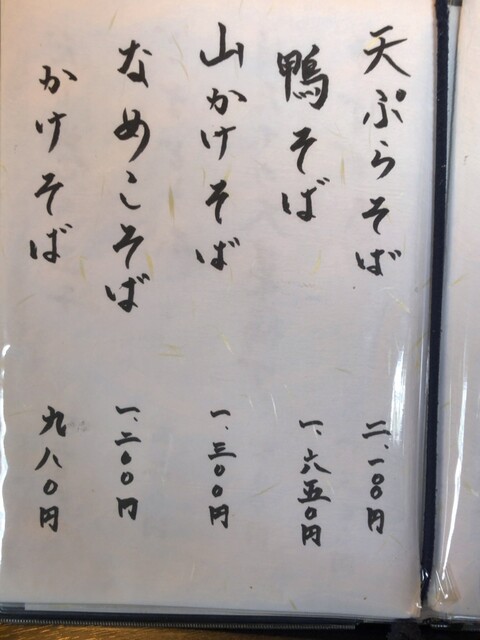 天ぷらそば 二、一〇〇円
鴨そば 一、六五〇円
山かけそば 一、三〇〇円
なめこそば 一、二〇〇円
かけそば 九八〇円